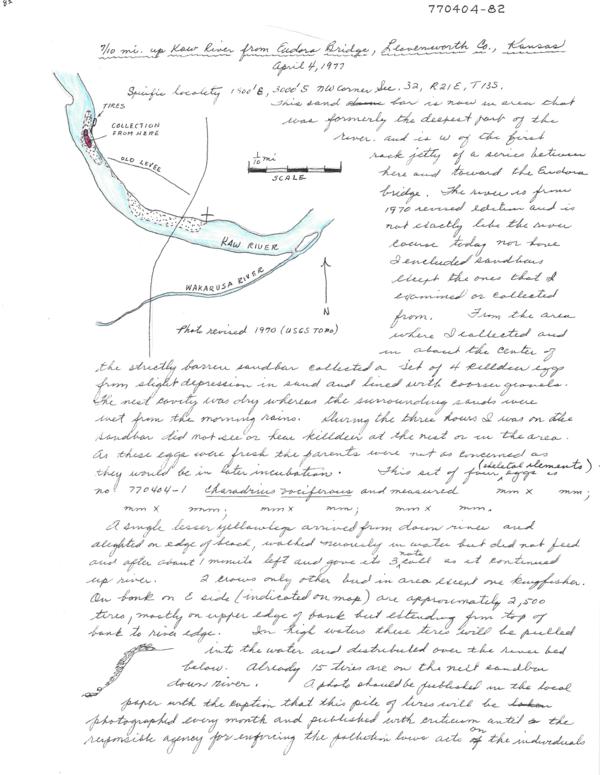 82
770404-82
7/10 mi. up Kaw River from Eudora Bridge, Leavenworth Co., Kansas
April 4, 1977
Specific locality 1900'E, 3000'S NW Corner Sec. 32, R21E, T13S.
This sand bar is now in area that
was formerly the deepest part of the
river. and is W of the first
rock jetty of a series between
here and toward the Eudora
bridge. The river is from
1970 revised edition and is
not exactly like the river
course today nor have
I excluded sandbars
except the ones that I
examined or collected
from. From the area
where I collected and
in about the center of
TIRES
COLLECTION
FROM HERE
OLD LEVEE
1/10 mi
SCALE
KAW RIVER
WAKARUSA RIVER
N
Photo revised 1970 (USGS TOPO)
the strictly barren sandbar collected a set of 4 killdeer eggs
from slight depression in sand and lined with coarser gravels.
The nest cavity was dry whereas the surrounding sands were
wet from the morning rains. During the three hours I was on the
sandbar did not see or hear killdeer at the nest or in the area.
As these eggs were fresh the parents were not as concerned as
they would be in later incubation. This set of four (skeletal elements) eggs is
no. 770404-1 Charadrius vociferous and measured mm x mm;
mm x mm; mm x mm; mm x mm.
A single lesser yellowlegs arrived from down river and
alighted on edge of beach, walked nervously in water but did not feed
and after about 1 minute left and gave its 3 note call as it continued
up river. 2 crows only other bird in area except one kingfisher.
On bank on E side (indicated on map) are approximately 2,500
tires, mostly on upper edge of bank but extending from top of
bank to river edge. In high waters these tires will be pulled
into the water and distributed over the river bed
below. Already 15 tires are on the next sandbar
down river. A photo should be published in the local
paper with the caption that this pile of tires will be
photographed every month and published with criticism until the
responsible agency for enforcing the pollution laws acts on the individuals